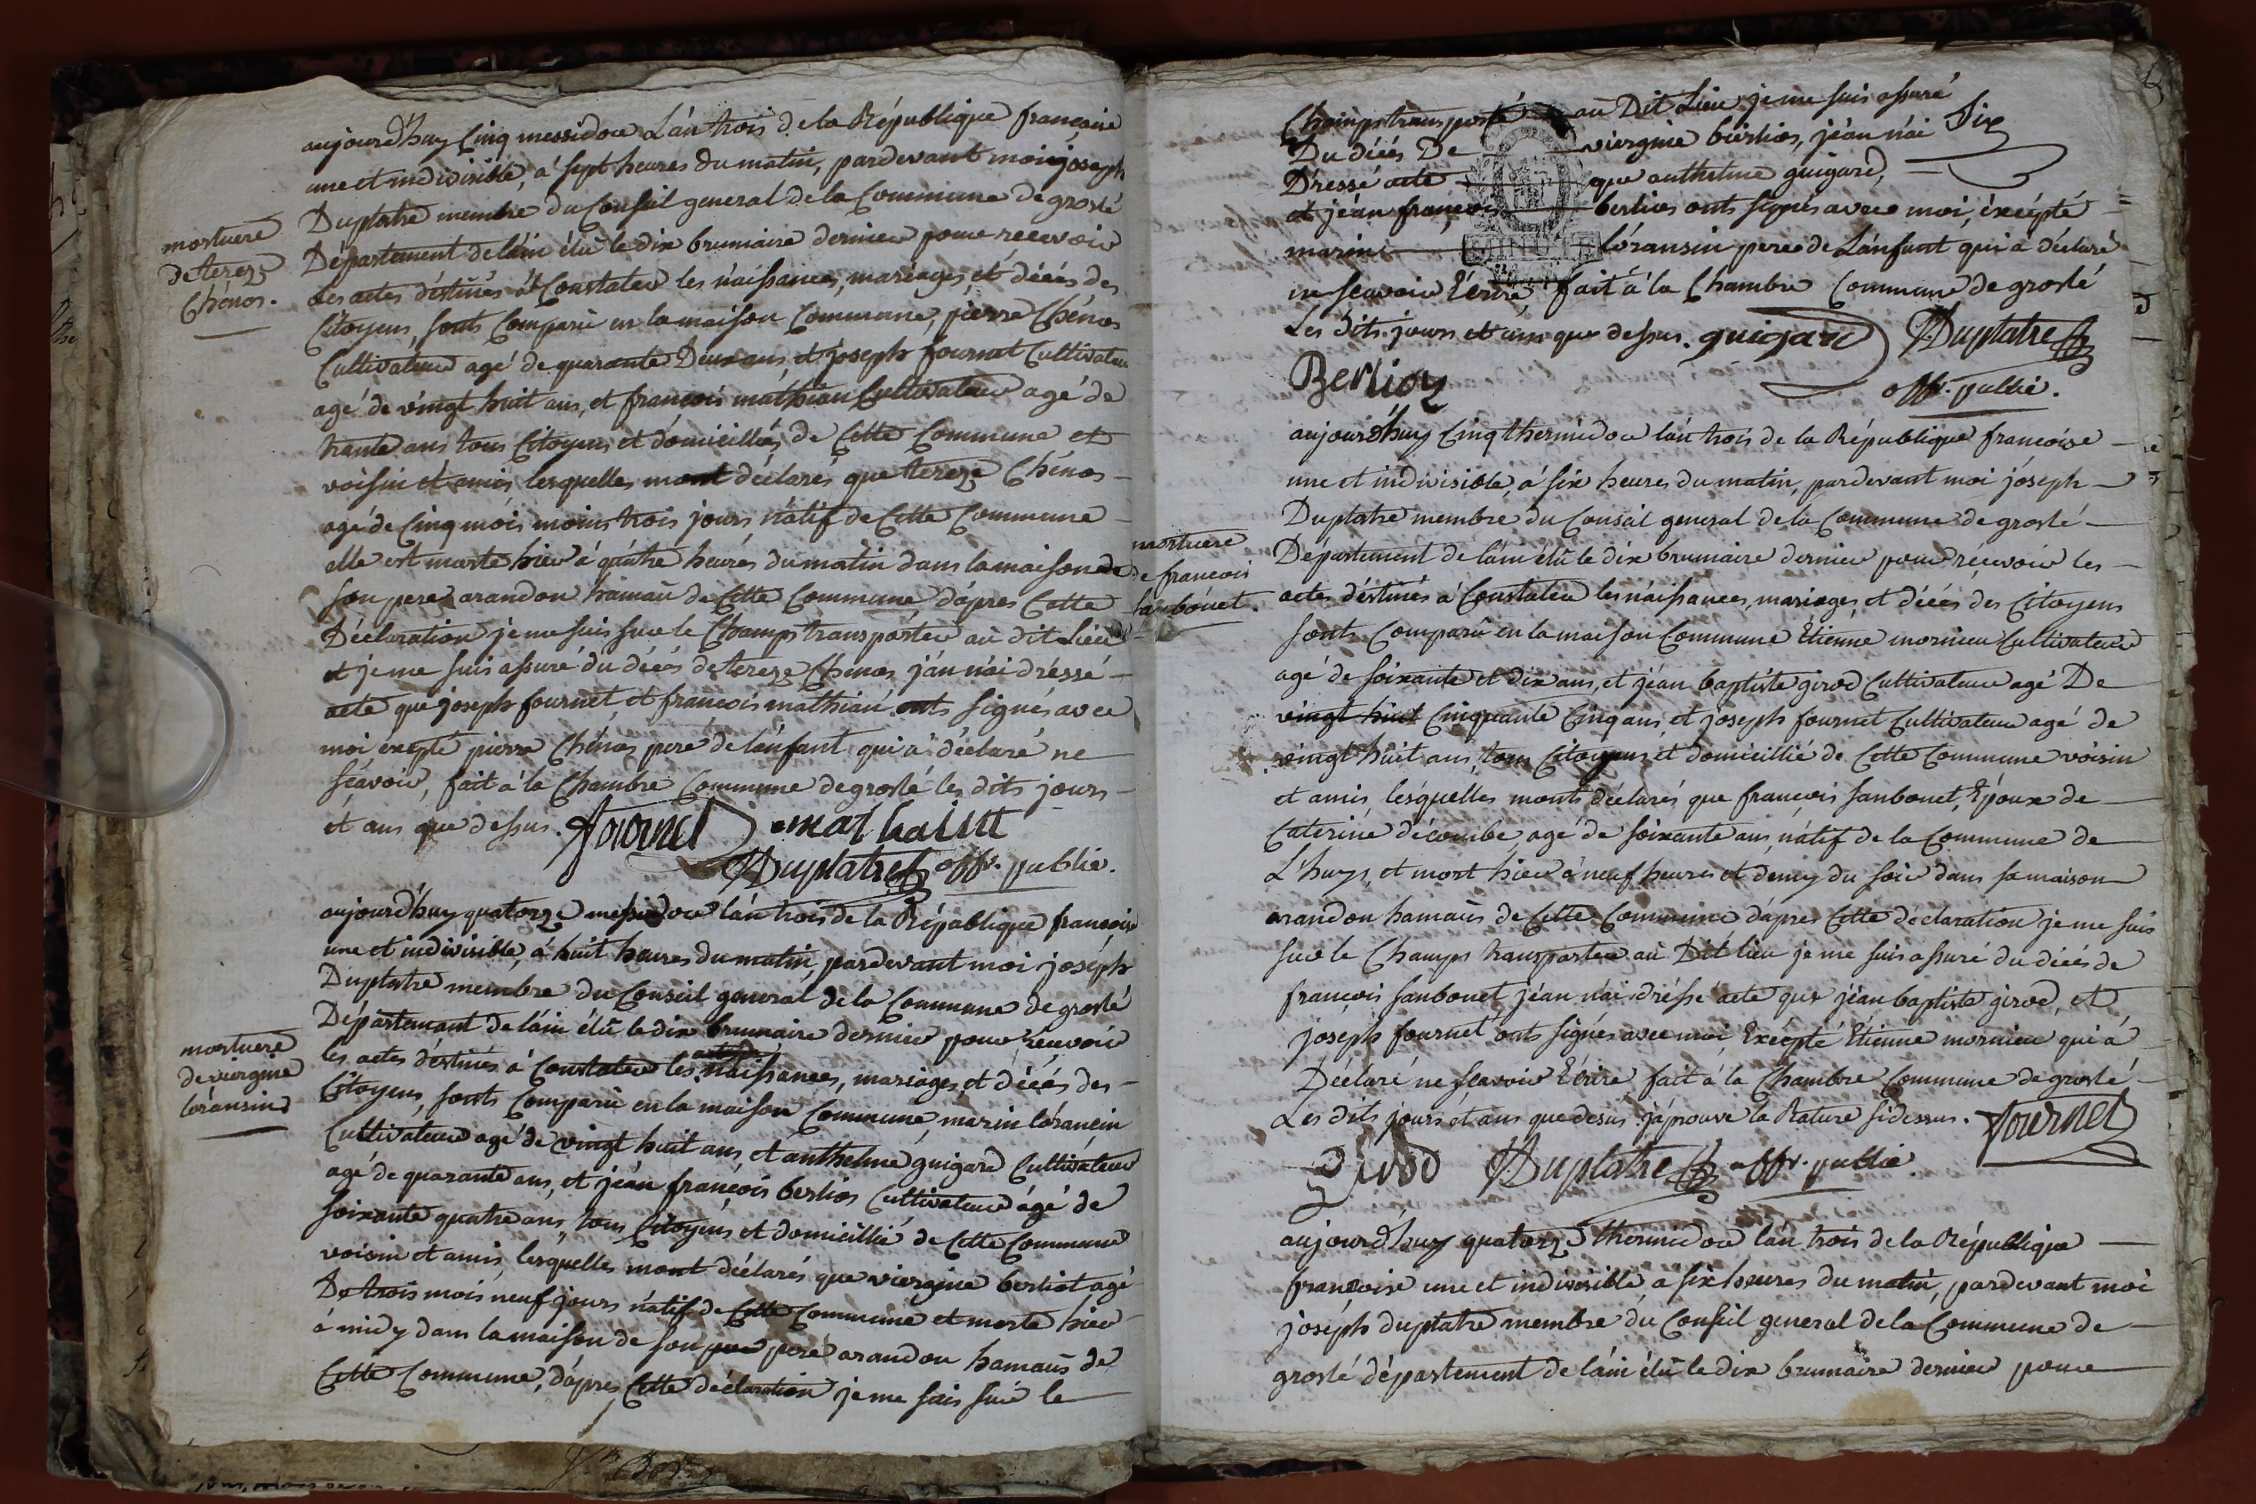 mortuere
de tereze
Chénos.
aujourd'huy Cinq messidor L'an trois de la République françoise
une et indivisible, á sept heures du matin, pardevant moi joseph
Duplatre membre du Conseil general de la Commune de groslé
Département de láin élû le dix brumaire dernier pour recevoir
les actes déstinés á Constater les náissances, mariages, et décés des
Citoyens, sonts Comparû en la maison Commune, pierre Chénos
Cultivateur agé de quarante Deux ans, et joseph fournet Cultivateur
agé de vingt huit ans, et françois mathian Cultivateur agé de
trante ans tous Citoyens et domiciliés de Cette Commune et
voisin et amis lesquelles mont déclarés que tereze Chénos
agé de Cinq mois moins trois jours natif de Cette Commune
elle est morte hier á quatre heures du matin dans la maison de
son pere arandon hamaû de Cette Commune, dápres Cette
Déclaration je me suis sur le Champs transporter aû dit Lieu
et je me suis assuré du décés de tereze Chénos ján nái dréssé
acte que joseph fournet et françois mathian onts signés avec
moi excépté pierre Chénos pere de lénfant qui á déclaré ne
scávoir, fait á la Chambre Commune de groslé les dits jours
et ans que dessus. fournet mathaint
Duplatre offr. public.
mortuere
de viergine
loransin
aujourd'huy quatorze messidor l'an trois de la République françoise
une et indivisible, á huit heures du matin pardevant moi joséph
Duplatre membre du Conseil general de la Commune de groslé
Départemant de láin élû le dix brumaire dernier pour recevoir
les actes déstinés á Constater les náissances, mariages, et décés des
Citoyens, sonts Comparû en la maison Commune, marin loransin
Cultivateur agé de vingt huit ans, et ánthelme guigard Cultivateur
agé de quarante ans, et jéan françois berlios Cultivateur ágé de
soixante quatre ans, tous Citoyens et domicillié de Cette Commune
voisin et amis, lesquelles mont déclarés que viergine berliot agé
De trois mois neuf jours natif de Cette Commune et morte hier
á midy dans la maison de son pere arandon hamaû de
Cette Commune, dápres Cette déclaration je me suis sur le
Six
Champs transporté aû Dit Lieu je me suis assuré
Du décés De viergine bérlios, jéan nái
Dressé acte que anthelme guigard,
et jéan françois berlios onts signés avec moi, éxcépté
marin loransin pere de Lánfant qui á déclaré
ne scavoir Écrire, fait á la Chambre Commune de groslé
Les Dits jours et ans que dessus. guigard Duplatre
Berlioz offr. public.
mortuere
de francois
sanbónet.
aujourd'huy Cinq thermidor lán trois de la République françoise
une et indivisible, á six heures du matin, pardevant moi joséph
Duplatre membre du Conseil general de la Commune de groslé
Département de láin élû le dix brumaire dernier pour récevoir les
actes déstinés á Constater les náissances, mariages, et décés des Citoyens
sonts Comparû en la maison Commune Étienne mornieu Cultivateur
agé de soixante et dix ans, et jéan baptiste girod Cultivateur agé De
vingt huit Cinquante Cinq ans, et joseph fournet Cultivateur agé de
vingt huit ans, tous Citoyens et domicillié de Cette Commune voisin
et amis, lesquelles monts déclarés que françois sanbonet, Époux de
Caterine décombe agé de soixante ans, natif de la Commune de
L'huys, et mort hier á neuf heures et demy du soir dans sa maison
arandon hamaû de Cette Commune dápres Cette déclaration je me suis
sur le Champs transporter aû Dit lieu je me suis assuré du décés de
françois sanbonet jéan nái dréssé acte que jéan baptiste girod, et
joséph fournet onts signés avec moi, Excépté Étienne mornieu qui á
Déclaré ne scavoir Ecrire fait á la Chambre Commune de groslé
Les dits jours et ans que desus jáprouve la Rature sidessus. fournet
girod Duplatre offr. public.
aujourd'huy quatorze thermidor lán trois de la République
françoise une et indivisible a six heures du matin, pardevant moi
joséph duplatre membre du Conseil general de la Commune de
groslé département de láin élû le dix brumaire dernier pour